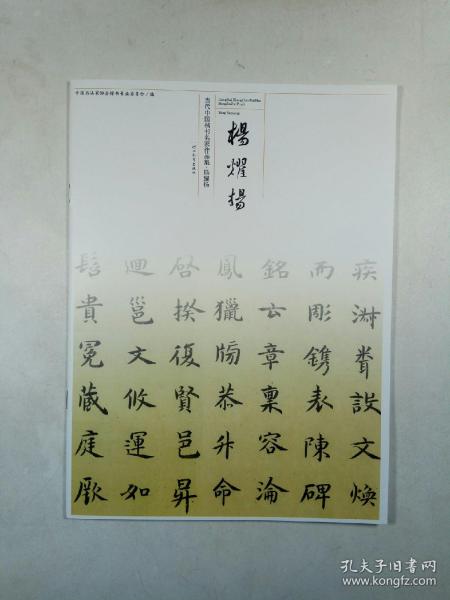 中国书法家协会楷书专业委员会/编
当代中国楷书名家作品集·杨耀扬
Yang Yaoyang
楊燿揚
疾淋眷談文煥
而彫鐫表陳碑
銘云章稟容淪
鳳獵牓恭升命
啓揆復賢邑昇
迴邕文攸運如
髫貴冕蔵庭厥
孔夫子旧书网
www.kongfz.com